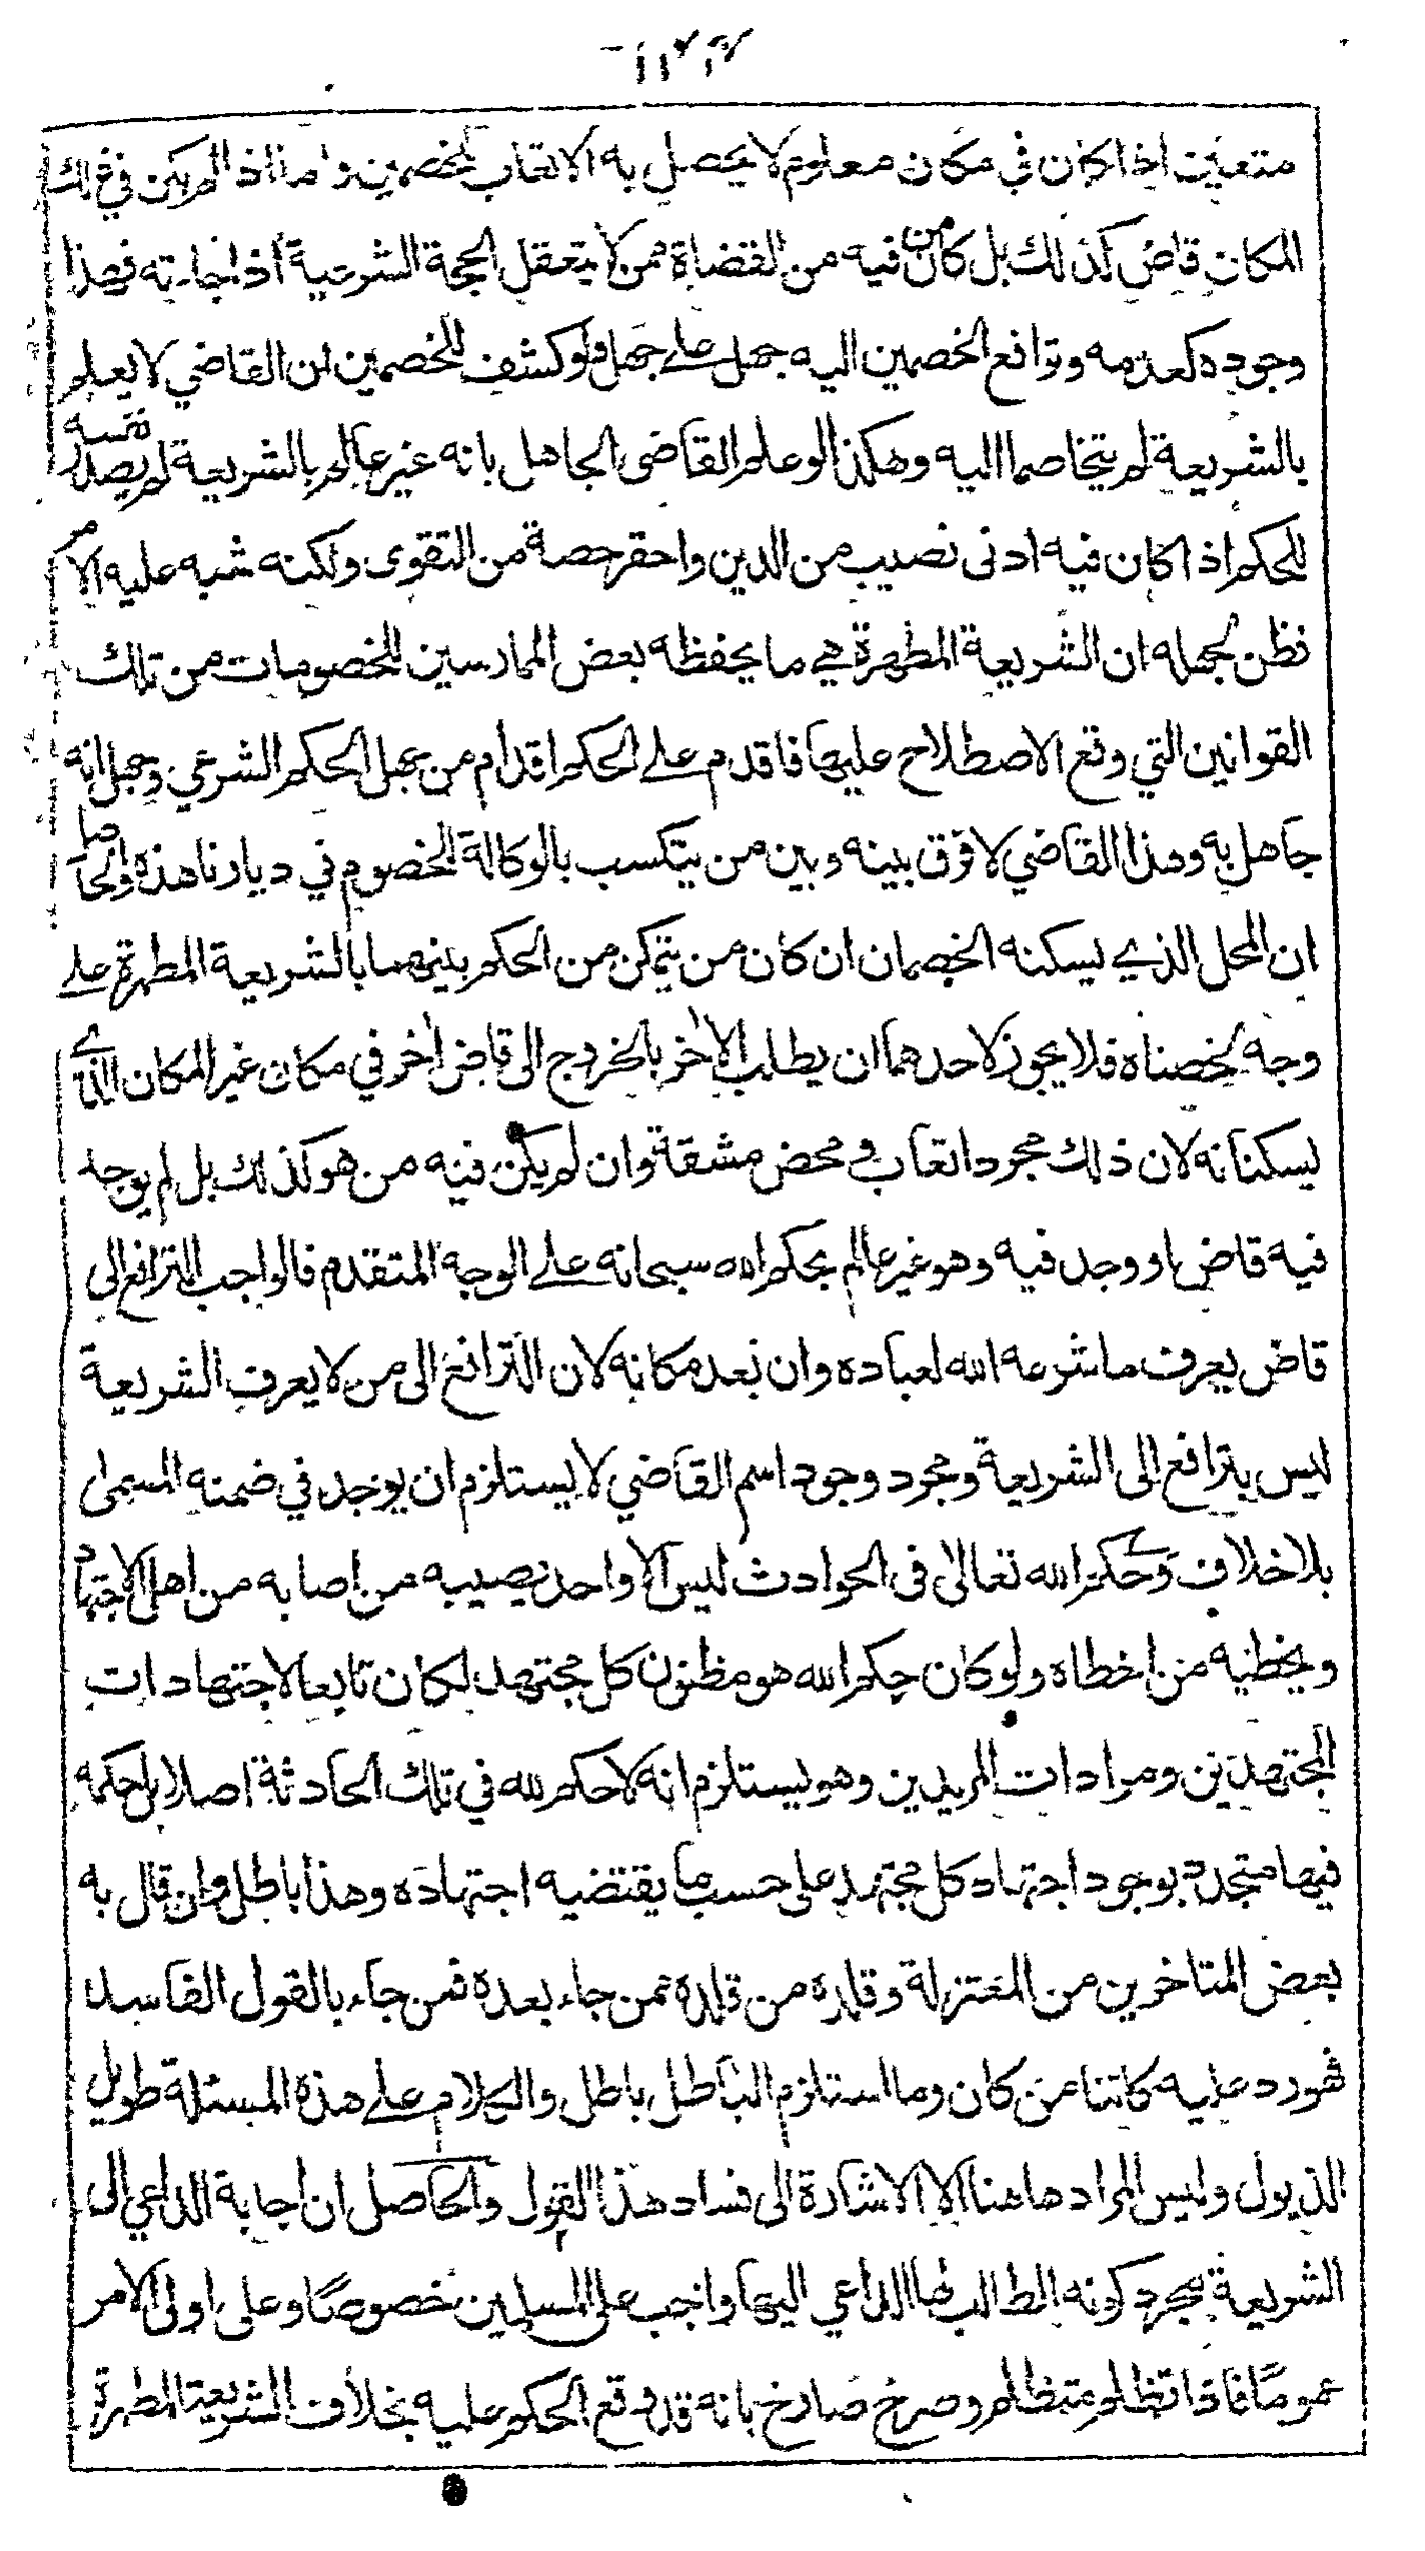 متعين اذا كان في مكان معلوم لا يحصل به الاتعاب للخصمين واما اذا لم يكن في ذلك
المكان قاض كذلك بل كان من فيه من القضاة ممن لا يتعقل الحجة الشرعية اذا جاءته فهذا
وجوده كعدمه وترافع الخصمين اليه جهل على جهل ولو كشف للخصمين ان القاضي لا يعلم
بالشريعة لم يتخاصما اليه وهكذا لو علم القاضى الجاهل بانه غير عالم بالشريعة لم يصدر نفسه
للحكم اذا كان فيه ادنى نصيب من الدين واحقر حصة من التقوى ولكنه شبه عليه الامر
فظن لجهله ان الشريعة المطهرة هي ما يحفظه بعض الممارسين للخصومات من تلك
القوانين التي وقع الاصطلاح عليها فاقدم على الحكم اقدام من يجهل الحكم الشرعي ويجهل انه
جاهل به وهذا القاضي لا فرق بينه وبين من يتكسب بالوكالة للخصوم في ديارنا هذه والحاصل
ان المحل الذي يسكنه الخصمان ان كان من يتمكن من الحكم بينهما بالشريعة المطهرة على
وجه لخصناه فلا يجوز لاحدهما ان يطلب الاخر بالخروج الى قاض اخر في مكان غير المكان الذي
يسكنانه لان ذلك مجرد اتعاب في محض مشقة وان لم يكن فيه من هو كذلك بل لم يوجد
فيه قاض او وجد فيه وهو غير عالم بحكم الله سبحانه على الوجه المتقدم فالواجب الترافع الى
قاض يعرف ما شرعه الله لعباده وان بعد مكانه لان الترافع الى من لا يعرف الشريعة
ليس بترافع الى الشريعة ومجرد وجود اسم القاضي لا يستلزم ان يوجد في ضمنه المسمى
بلا خلاف وحكم الله تعالى فى الحوادث ليس الا واحد يصيبه من اصابه من اهل الاجتهاد
ويخطيه من اخطاه ولو كان حكم الله هو مظنون كل مجتهد لكان تابعا لاجتهادات
المجتهدين ومرادات المريدين وهو يستلزم انه لا حكم لله في تلك الحادثة اصلا بل حكمه
فيها متجدد بوجود اجتهاد كل مجتهد على حسب ما يقتضيه اجتهاده وهذا باطل وان قال به
بعض المتاخرين من المعتزلة وقلده من قلده ممن جاء بعده فمن جاء بالقول الفاسد
فهو رد عليه كائنا من كان وما استلزم الباطل باطل والكلام على هذه المسئلة طويل
الذيول وليس المراد هاهنا الا الاشارة الى فساد هذا القول والحاصل ان اجابة الداعي الى
الشريعة بمجرد كونه الطالب لها الداعي اليها واجب على المسلمين خصوصا وعلى اولى الامر
عموما فاذا تظلم متظلم وصرخ صارخ بانه قد وقع الحكم عليه بخلاف الشريعة المطهرة